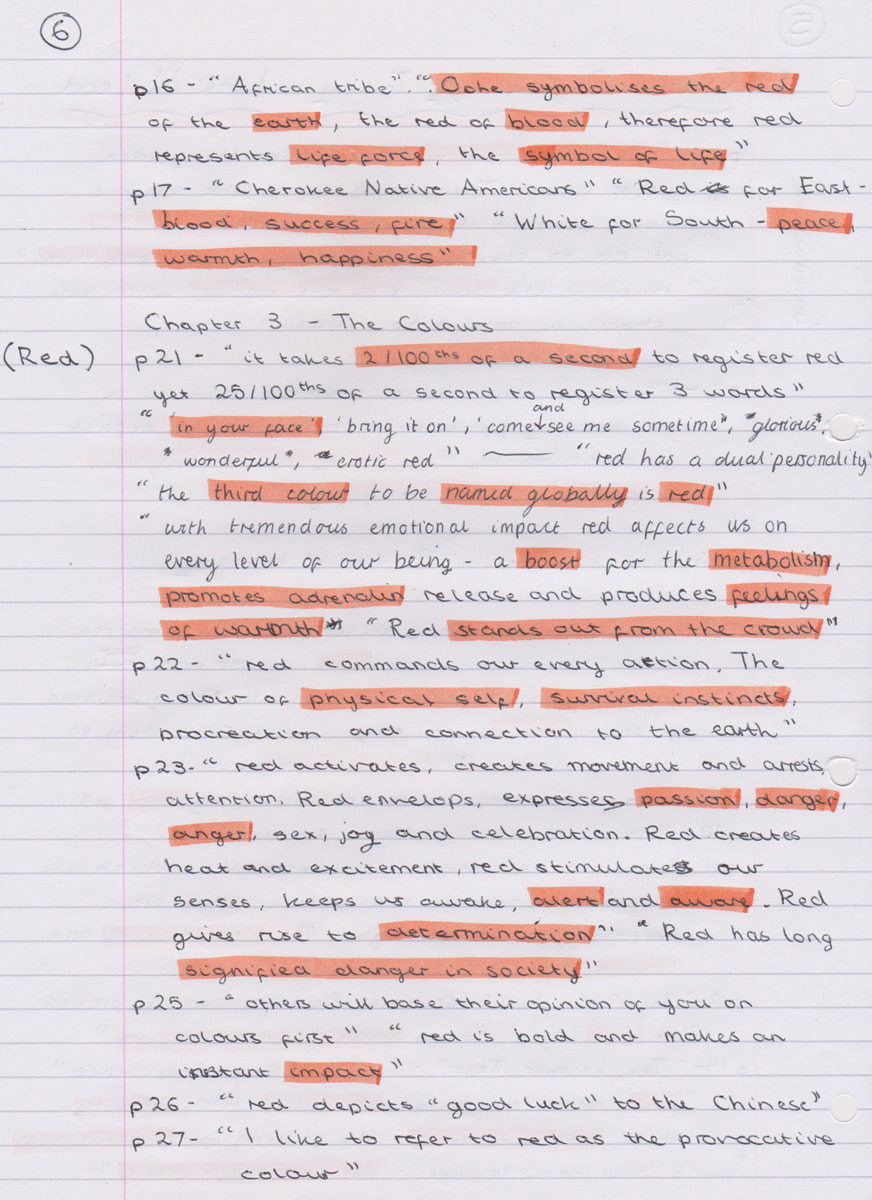 6
p16 - "African tribe". "Oche symbolises the red
of the earth, the red of blood, therefore red
represents life force, the symbol of life"
p17 - "Cherokee Native Americans" "Red for East -
blood, success, fire" "White for South - peace,
warmth, happiness"
Chapter 3 - The Colours
(Red)
p21 - "it takes 2/100ths of a second to register red
yet 25/100ths of a second to register 3 words"
"'in your face', 'bring it on', 'come and see me sometime', 'glorious',
'wonderful', erotic red" — "red has a dual personality"
"the third colour to be named globally is red"
"with tremendous emotional impact red affects us on
every level of our being - a boost for the metabolism,
promotes adrenalin release and produces feelings
of warmth" "Red stands out from the crowd"
p22 - "red commands our every action. The
colour of physical self, survival instincts,
procreation and connection to the earth"
p23 - "red activates, creates movement and arrests
attention. Red envelops, expresses passion, danger,
anger, sex, joy and celebration. Red creates
heat and excitement, red stimulates our
senses, keeps us awake, alert and aware. Red
gives rise to determination" "Red has long
signified danger in society"
p25 - "others will base their opinion of you on
colours first" "red is bold and makes an
instant impact"
p26 - "red depicts "good luck" to the Chinese"
p27 - "I like to refer to red as the provocative
colour"